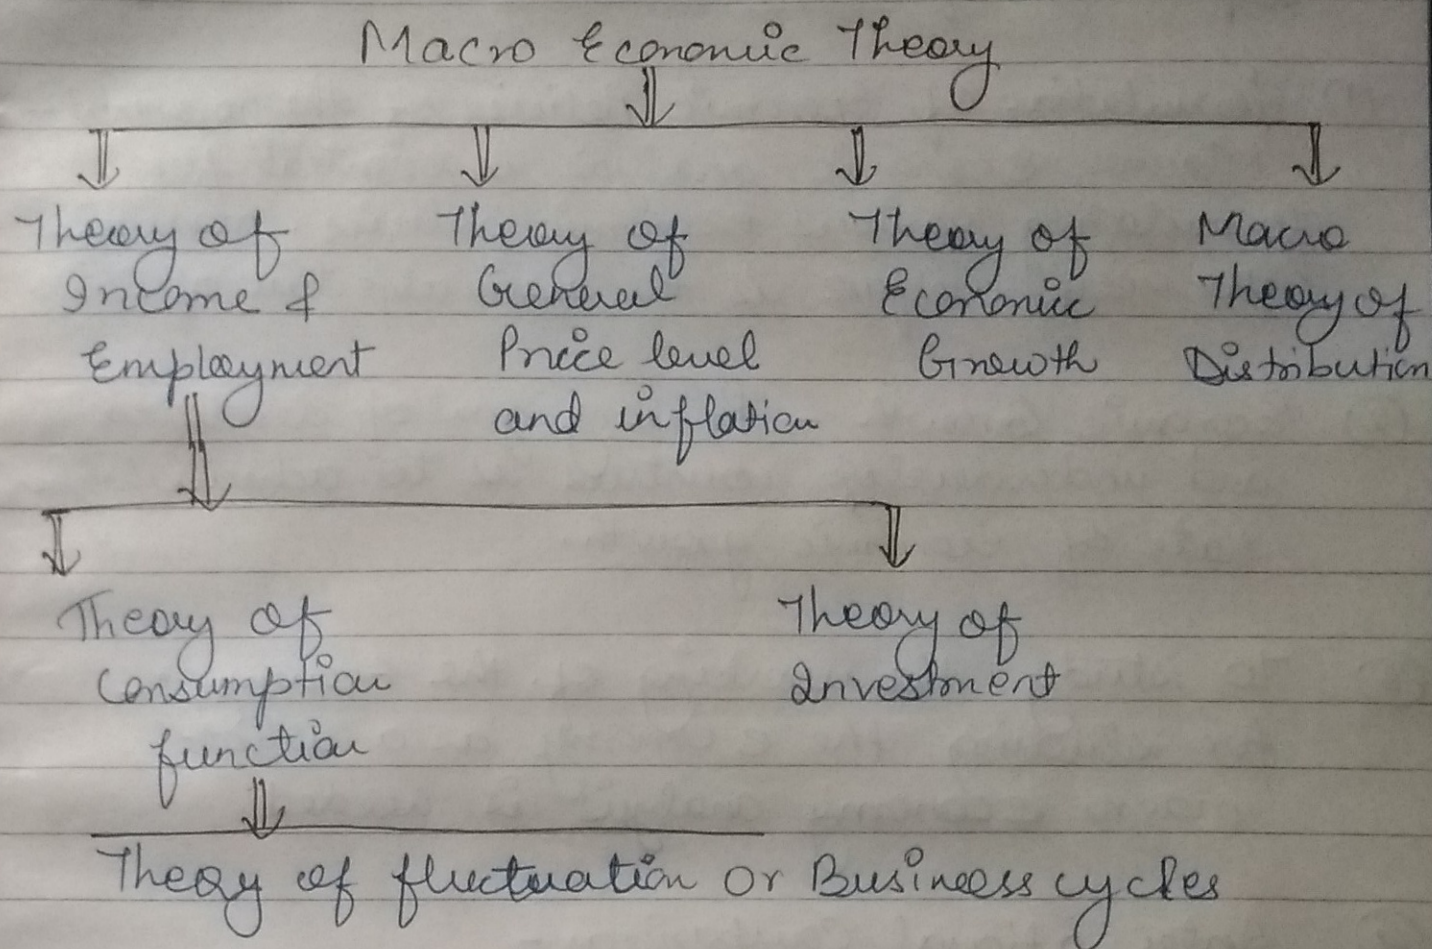 Macro Economic Theory
Theory of
Income &
Employment
Theory of
General
Price level
and inflation
Theory of
Economic
Growth
Macro
Theory of
Distribution
Theory of
Consumption
function
Theory of
Investment
Theory of fluctuation or Business cycles